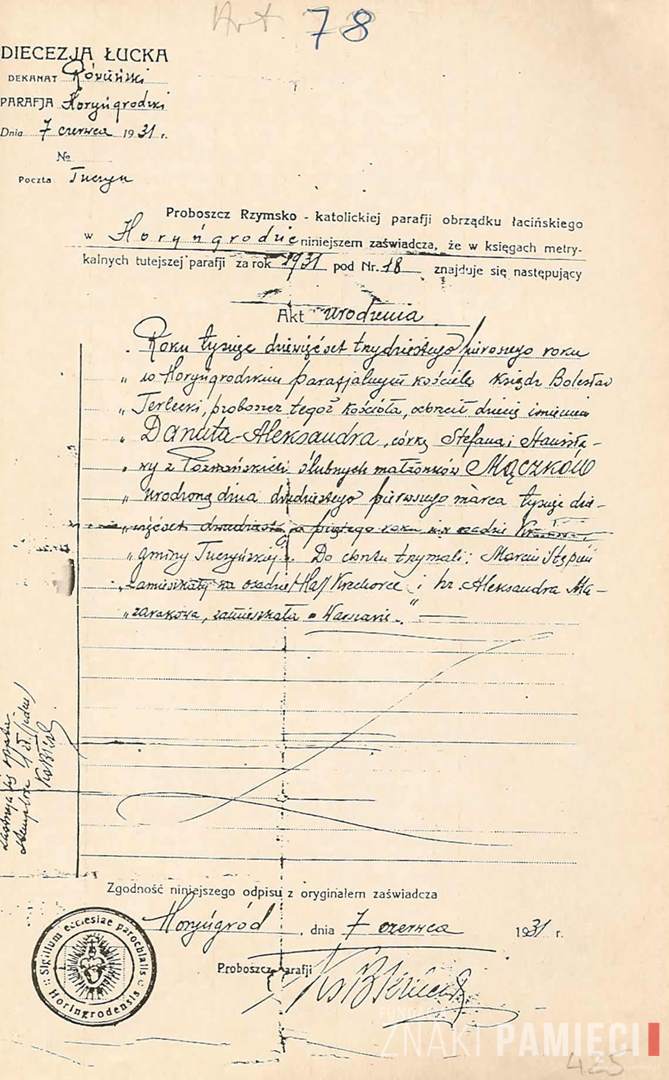 Art. 78
DIECEZJA ŁUCKA
DEKANAT Rówieński
PARAFJA Horyńgrodzki
Dnia 7 czerwca 1931 r.
№
Poczta Tuczyn
Proboszcz Rzymsko - katolickiej parafji obrządku łacińskiego
w Horyńgrodzie niniejszem zaświadcza, że w księgach metry-
kalnych tutejszej parafji za rok 1931 pod Nr. 18 znajduje się następujący
Akt urodzenia
Roku tysiąc dziewięćset trzydziestego pierwszego roku
„ w Horyńgrodzkim parafjalnym kościele ksiądz Bolesław
„ Terlecki, proboszcz tegoż kościoła, ochrzcił dziecię imieniem
„ Danuta-Aleksandra, córkę Stefana i Stanisła-
„ wy z Poznańskich ślubnych małżonków Mączków
„ urodzoną dnia dwudziestego pierwszego marca tysiąc dzie-
„ więćset dwudziesto piątego roku w osadzie
„ gminy Tuczyńskiej. Do chrztu trzymali: Marcin Stępień
„ zamieszkały na osadzie Hallerowce i hr. Aleksandra Ma-
„ zarakowa, zamieszkała w Warszawie. "
Zgodność niniejszego odpisu z oryginałem zaświadcza
Horyńgród, dnia 7 czerwca 1931 r.
Proboszcz parafji Ks. B. Terlecki
Sigillum ecclesiae parochialis Horingrodensis
ZNAKI PAMIĘCI
425